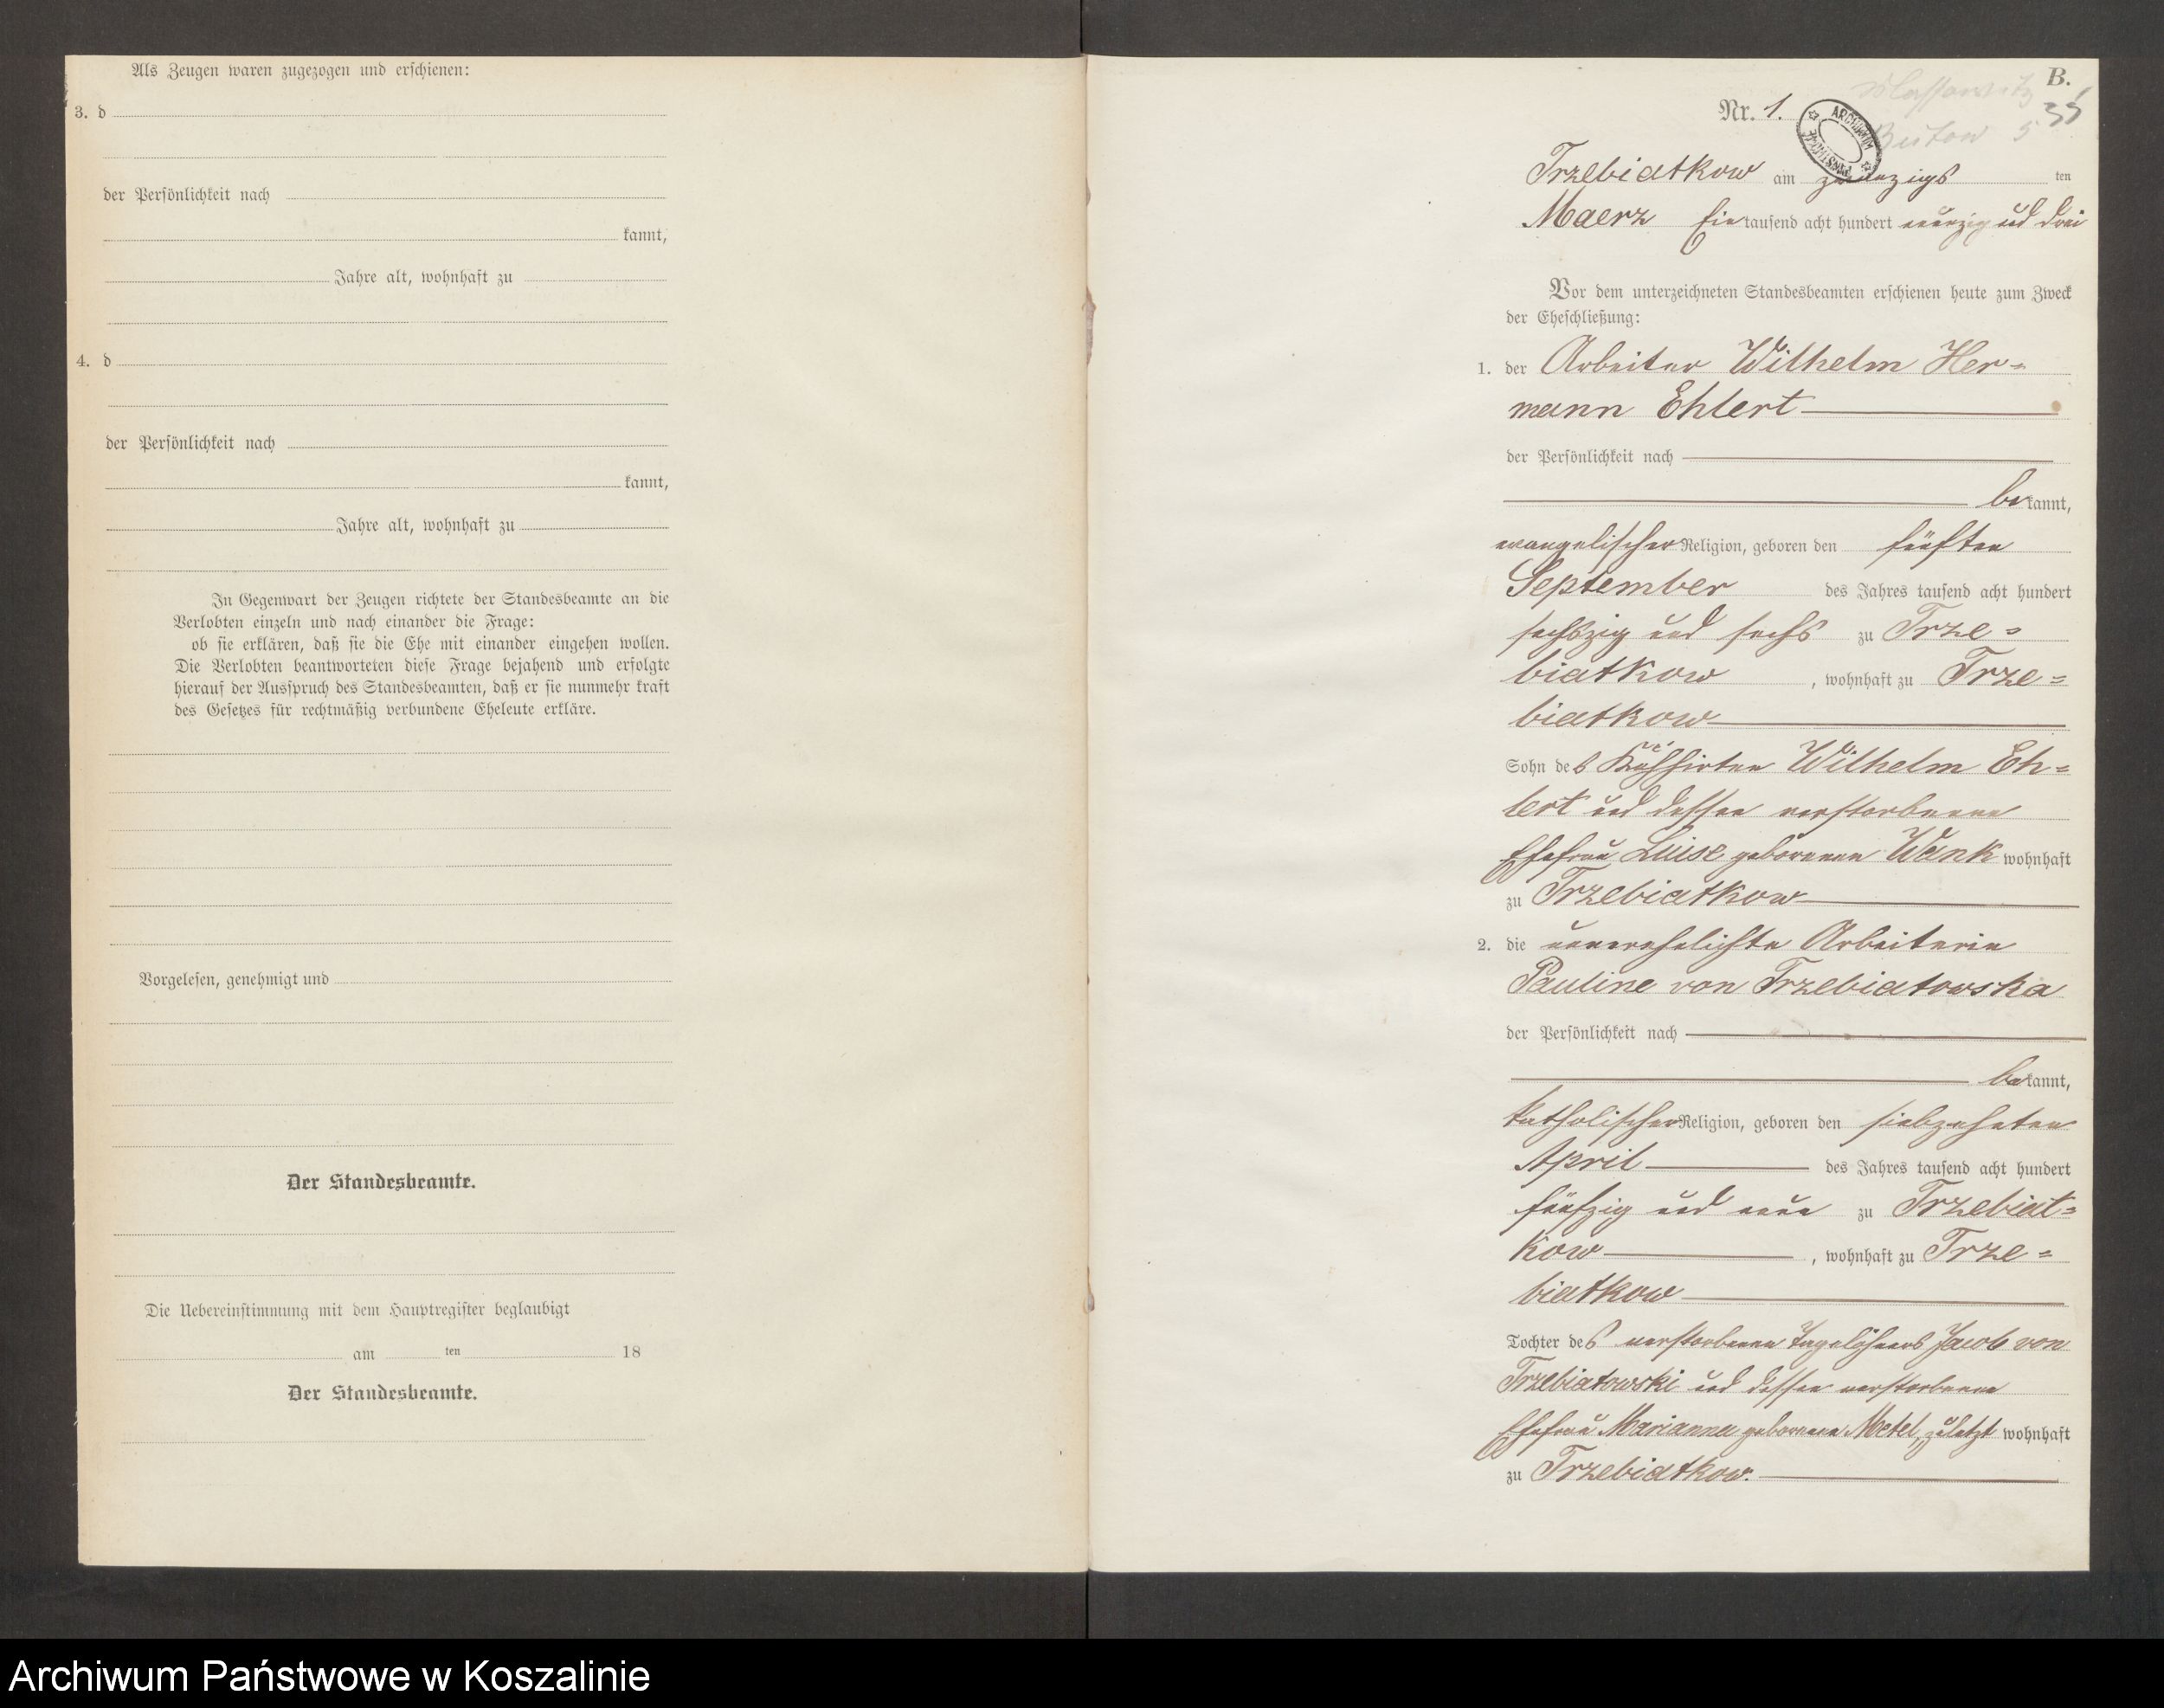 Als Zeugen waren zugezogen und erschienen:
3. d
der Persönlichkeit nach
kannt,
Jahre alt, wohnhaft zu
4. d
der Persönlichkeit nach
kannt,
Jahre alt, wohnhaft zu
In Gegenwart der Zeugen richtete der Standesbeamte an die
Verlobten einzeln und nach einander die Frage:
ob sie erklären, daß sie die Ehe mit einander eingehen wollen.
Die Verlobten beantworteten diese Frage bejahend und erfolgte
hierauf der Ausspruch des Standesbeamten, daß er sie nunmehr kraft
des Gesetzes für rechtmäßig verbundene Eheleute erkläre.
Vorgelesen, genehmigt und
Der Standesbeamte.
Die Uebereinstimmung mit dem Hauptregister beglaubigt
am ten 18
Der Standesbeamte.
B.
Nr. 1.
ARCHIWUM PAŃSTWOWE
Trzebiatkow am zwanzigs ten
Maerz Eintausend acht hundert neunzig und drei
Vor dem unterzeichneten Standesbeamten erschienen heute zum Zweck
der Eheschließung:
1. der Arbeiter Wilhelm Her=
mann Ehlert
der Persönlichkeit nach
bekannt,
evangelischer Religion, geboren den fünften
September des Jahres tausend acht hundert
sechszig und sechs zu Trze=
biatkow, wohnhaft zu Trze=
biatkow
Sohn des Kuhhirten Wilhelm Eh=
lert und dessen verstorbenen
Ehefrau Luise geborenen Wank wohnhaft
zu Trzebiatkow
2. die unverehelichte Arbeiterin
Pauline von Trzebiatowska
der Persönlichkeit nach
bekannt,
katholischer Religion, geboren den siebzehnten
April des Jahres tausend acht hundert
fünfzig und neun zu Trzebiat=
kow, wohnhaft zu Trze=
biatkow
Tochter des verstorbenen Tagelöhners Jacob von
Trzebiatowski und dessen verstorbenen
Ehefrau Marianna geborenen Metel, zuletzt wohnhaft
zu Trzebiatkow.
Archiwum Państwowe w Koszalinie